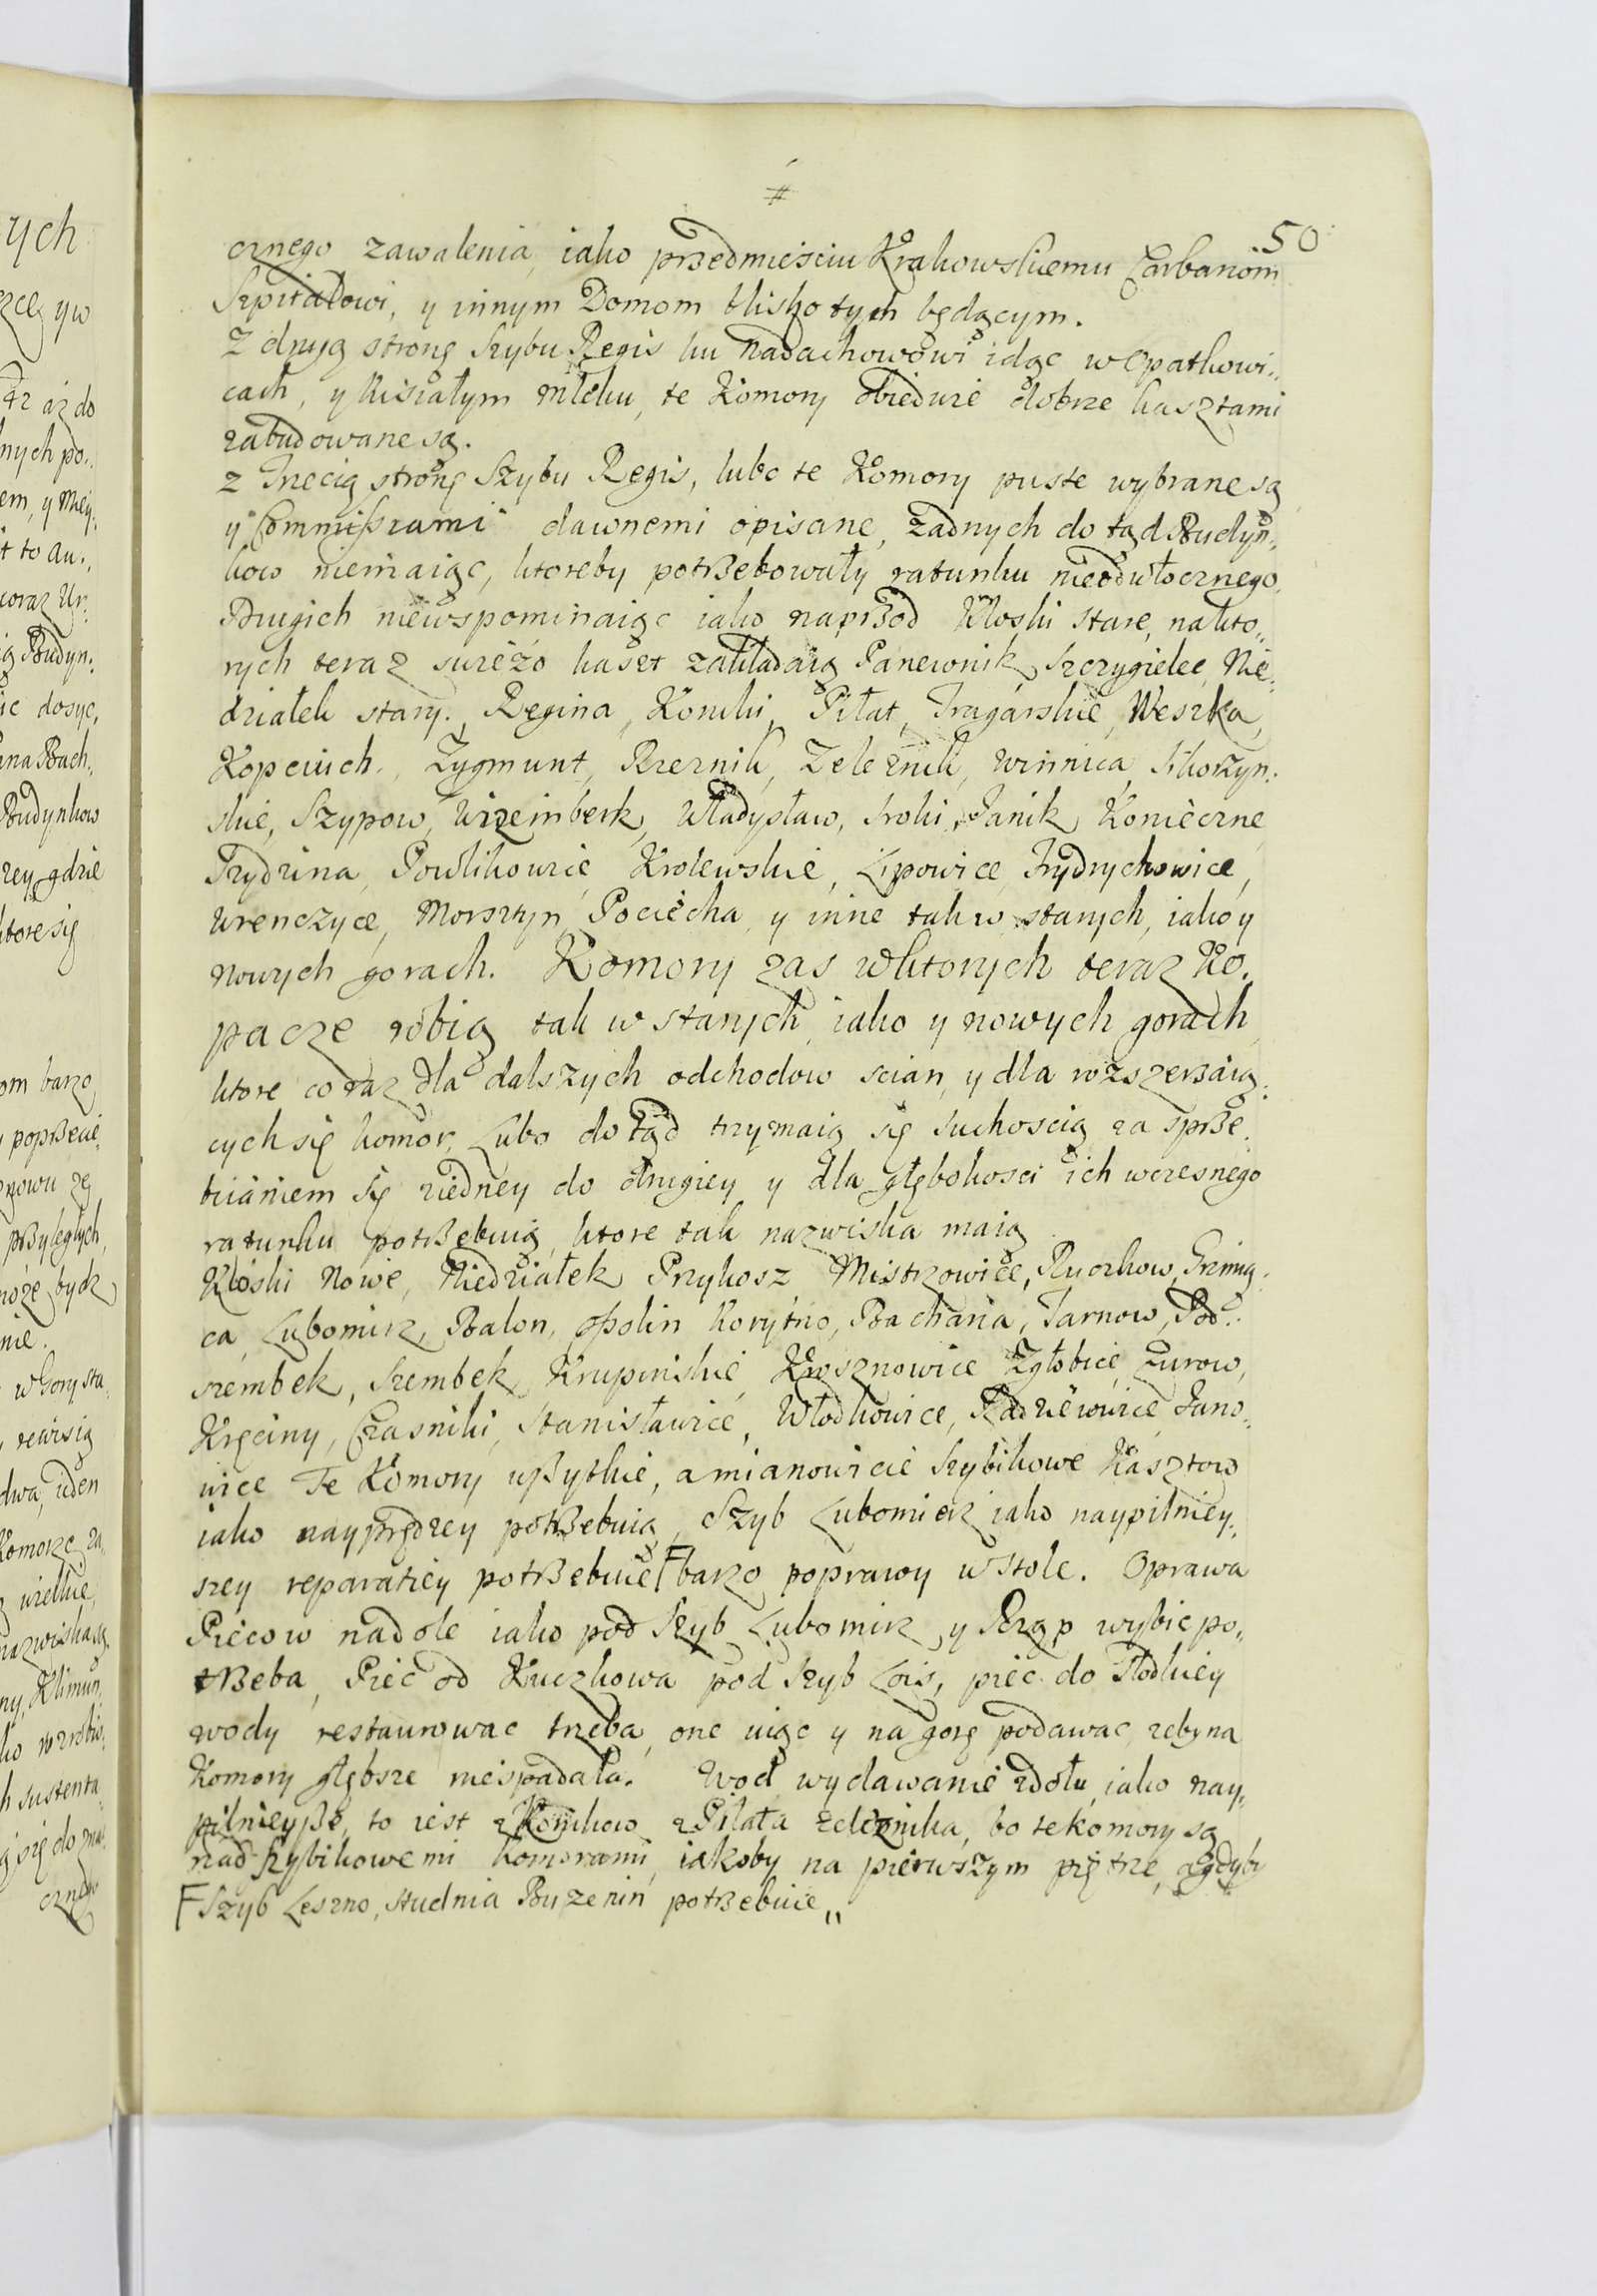 #
.50
cznego zawalenia, iako przedmieściu Krakowskiemu Carbariom
Szpitalowi, y innym Domom blisko tych będącym.
Z drugą stronę Szybu Regis ku Nadachowowi idąc w Opatkowi„
cach, y Kisiałym Mleku, te Komory obiedwie dobrze kasztami
zabudowane są.
z Trzecią stronę Szybu Regis, lubo te Komory puste wybrane są
y Commissiami dawnemi opisane, żadnych do tąd Budyn„
kow niemaiąc, ktoreby potrzebowały ratunku nieodwłocznego.
Drugich niewspominaiąc iako naprzod Kłoski Stare, na kto„
rych teraz swieżo kaszt zakładaią Panewnik, Szczygielec, Nie„
działek stary, Regina, Koniki, Piłat, Tragarskie, Weszka,
Kopciuch, Zygmunt, Brzeznik, Zeleźnik, Winnica Skorzyn„
skie, Szypow, Wizemberk, Władysław, Sroki, Janik, Konieczne
Frydzina, Powlikowie, Krolewskie, Lipowice, Frydrychowice,
Wrenczyce, Morsztyn, Pociecha, y inne tak w starych, iako y
nowych gorach. Komory zas w ktorych teraz Ko„
pacze robią tak w starych, iako y nowych gorach,
ktore co raz dla dalszych odchodow scian, y dla rozszerzaią„
cych się komor, Lubo do tąd trzymaią się suchoscią za sprze„
biianiem się ziedney do drugiey y dla głębokosci ich wczesnego
ratunku potrzebuią, ktore tak nazwiska maią
Kłoski Nowe, Niedziałek Przykosz, Mistrzowice, Kuczkow, Grzmią„
ca, Lubomirz, Balon, Opolin Korytno, Bacharia, Tarnow, Pod„
szembek, Szembek, Krupinskie, Krosznowice, Zgłobice, Zurow,
Kręciny, Czasniki, Stanisławice, Włodkowice, Radziewowice, Jano„
wice Te Komory wszytkie, a mianowicie Szybikowe Kasztow
iako nayprędzey potrzebuią, Szyb Lubomierz iako naypilniey„
szey reparatiey potrzebuie F barzo poprawy w Stole. Oprawa
Piecow na dole iako pod Szyb Lubomirz y Rząp wybic po„
trzeba, Piec od Kuczkowa pod Szyb Lois, piec do Słodkiey
wody restaurowac trzeba, one więc y na gorę podawac, zeby na
Komory głębsze niespadała. Wod wydawanie zdołu, iako nay„
pilnieysze, to iest z Konikow z Piłata Zeleznika, bo te komory są
nad Szybikowemi komorami, iakoby na pierwszym piętrze, agdyby
F Szyb Leszno, studnia Buzenin potrzebuie„